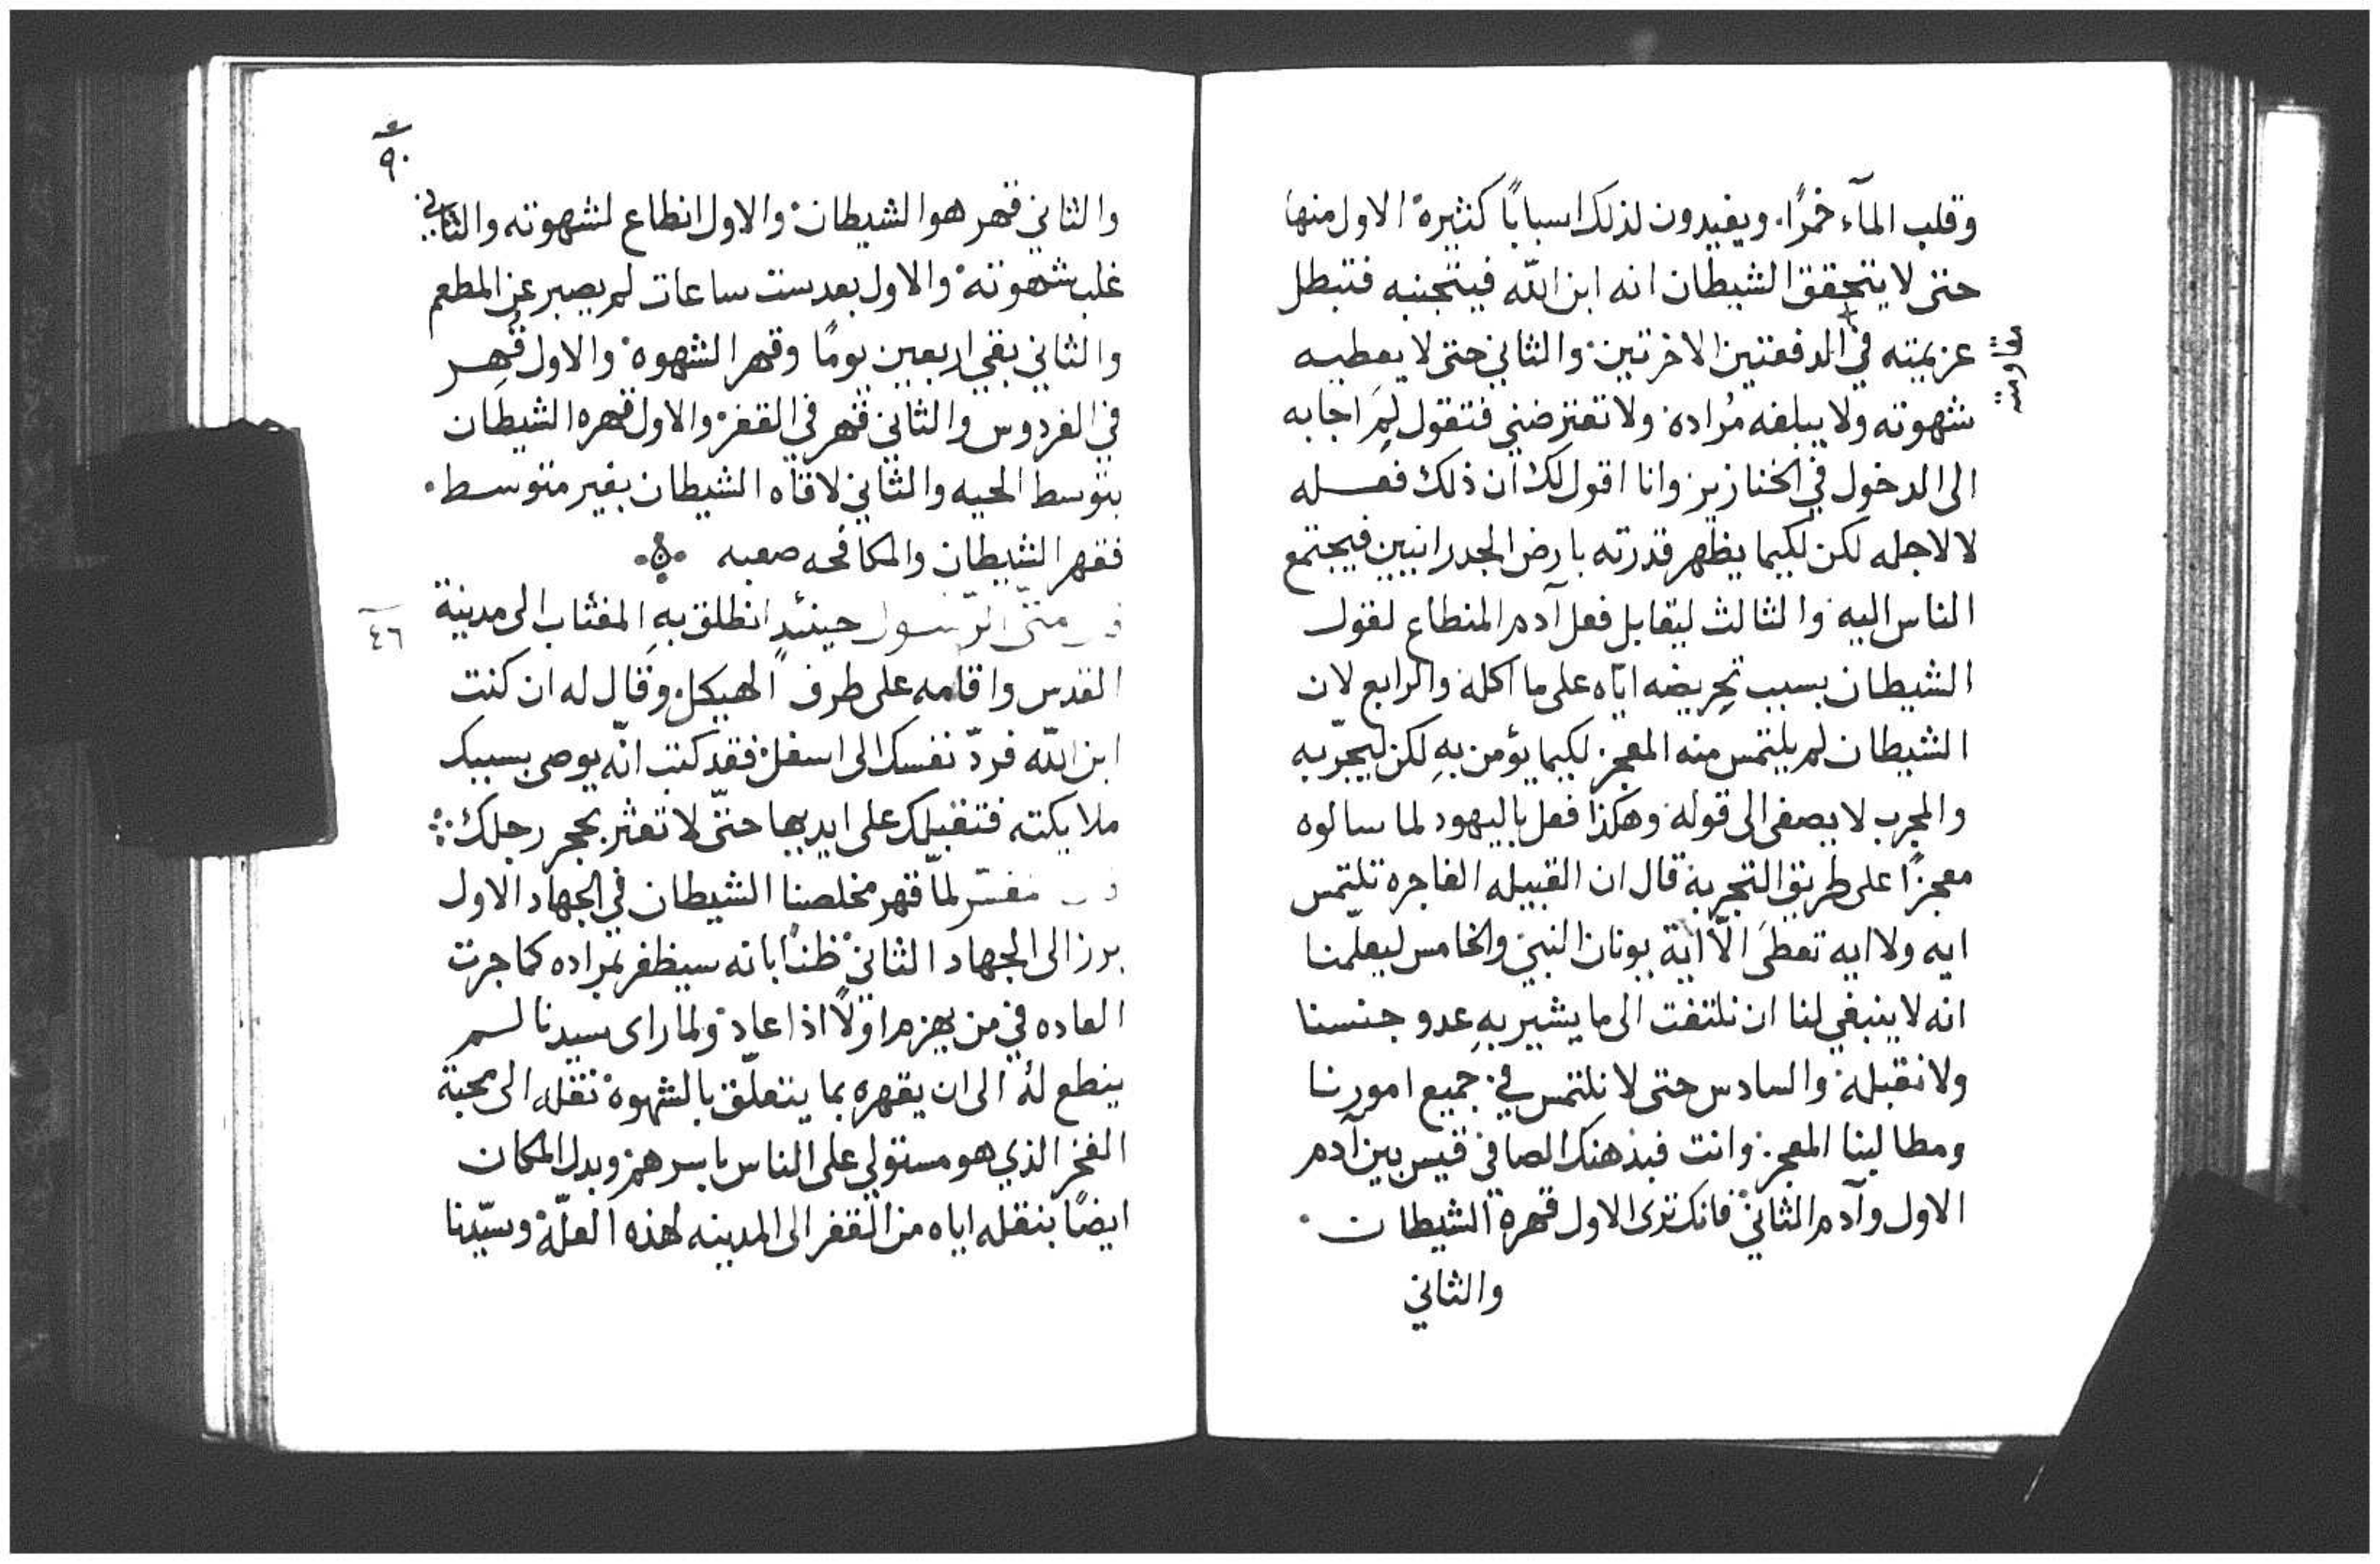 وقلب المآء خمرًا. ويفيدون لذلك اسبابًا كثيرة الاول منها
حتى لا يتحقق الشيطان انه ابن الله فيتجنبه فتبطل
عزيمته في الدفعتين الاخرتين والثاني حتى لا يعطيه
مقاومته
شهوته ولا يبلغه مُراده ولا تعترضني فتقول لِمَ اجابه
الى الدخول في الخنازير وانا اقول لك ان ذلك فعله
لا لاجله لكن لكيما يظهر قدرته بارض الجدرانيين فيجتمع
الناس اليه والثالث ليقابل فعل آدم المنطاع لقول
الشيطان بسبب تحريضه اياه على ما اكله والرابع لان
الشيطان لم يلتمس منه المعجز لكيما يؤمن بهِ لكن ليجرّبه
والمجرب لا يصغى الى قوله وهكذا فعل باليهود لما سالوه
معجزًا على طريق التجربة قال ان القبيله الفاجره تلتمس
ايه ولا ايه تعطَى الّا اية يونان النبي والخامس ليعلّمنا
انه لا ينبغي لنا ان نلتفت الى ما يشير بهِ عدو جنسنا
ولا نقبله والسادس حتى لا نلتمس في جميع امورنا
ومطالبنا المعجز وانت فبذهنك الصافي قيس بين آدم
الاول وآدم الثاني فانك ترى الاول قهرة الشيطان.
والثاني
٩٠
والثاني قهر هو الشيطان والاول انطاع لشهوته والثاني
غلب شهوته والاول بعد ست ساعات لم يصبر عن المطعم
والثاني بقي اربعين يومًا وقهر الشهوة والاول قُهِر
في الفردوس والثاني قهر في القفر والاول قهره الشيطان
بتوسط الحيه والثاني لاقاه الشيطان بغير متوسط.
فقهر الشيطان والمكافحه صعبه
متى الرسول حينئدٍ انطلق بهِ المغتاب الى مدينة
٤٦
القدس واقامه على طرف الهيكل وقال له ان كنت
ابن الله فردّ نفسك الى اسفل فقد كتب انّه يوصى بسببك
ملايكته فتقبلك على ايديها حتّى لا تعثر بحجر رجلك
مفسّر لمّا قهر مخلصنا الشيطان في الجهاد الاول
برز الى الجهاد الثاني ظنًا بانه سيظفر بمراده كما جرت
العاده في من يهزم اولًا اذا عاد ولما راى سيدنا لم
ينطع له الى ان يقهره بما يتعلّق بالشهوة نقله الى محبة
الفخر الذي هو مستولي على الناس باسرهم وبدل المكان
ايضًا بنقله اياه من القفر الى المدينه لهذه العلّة وسيّدنا